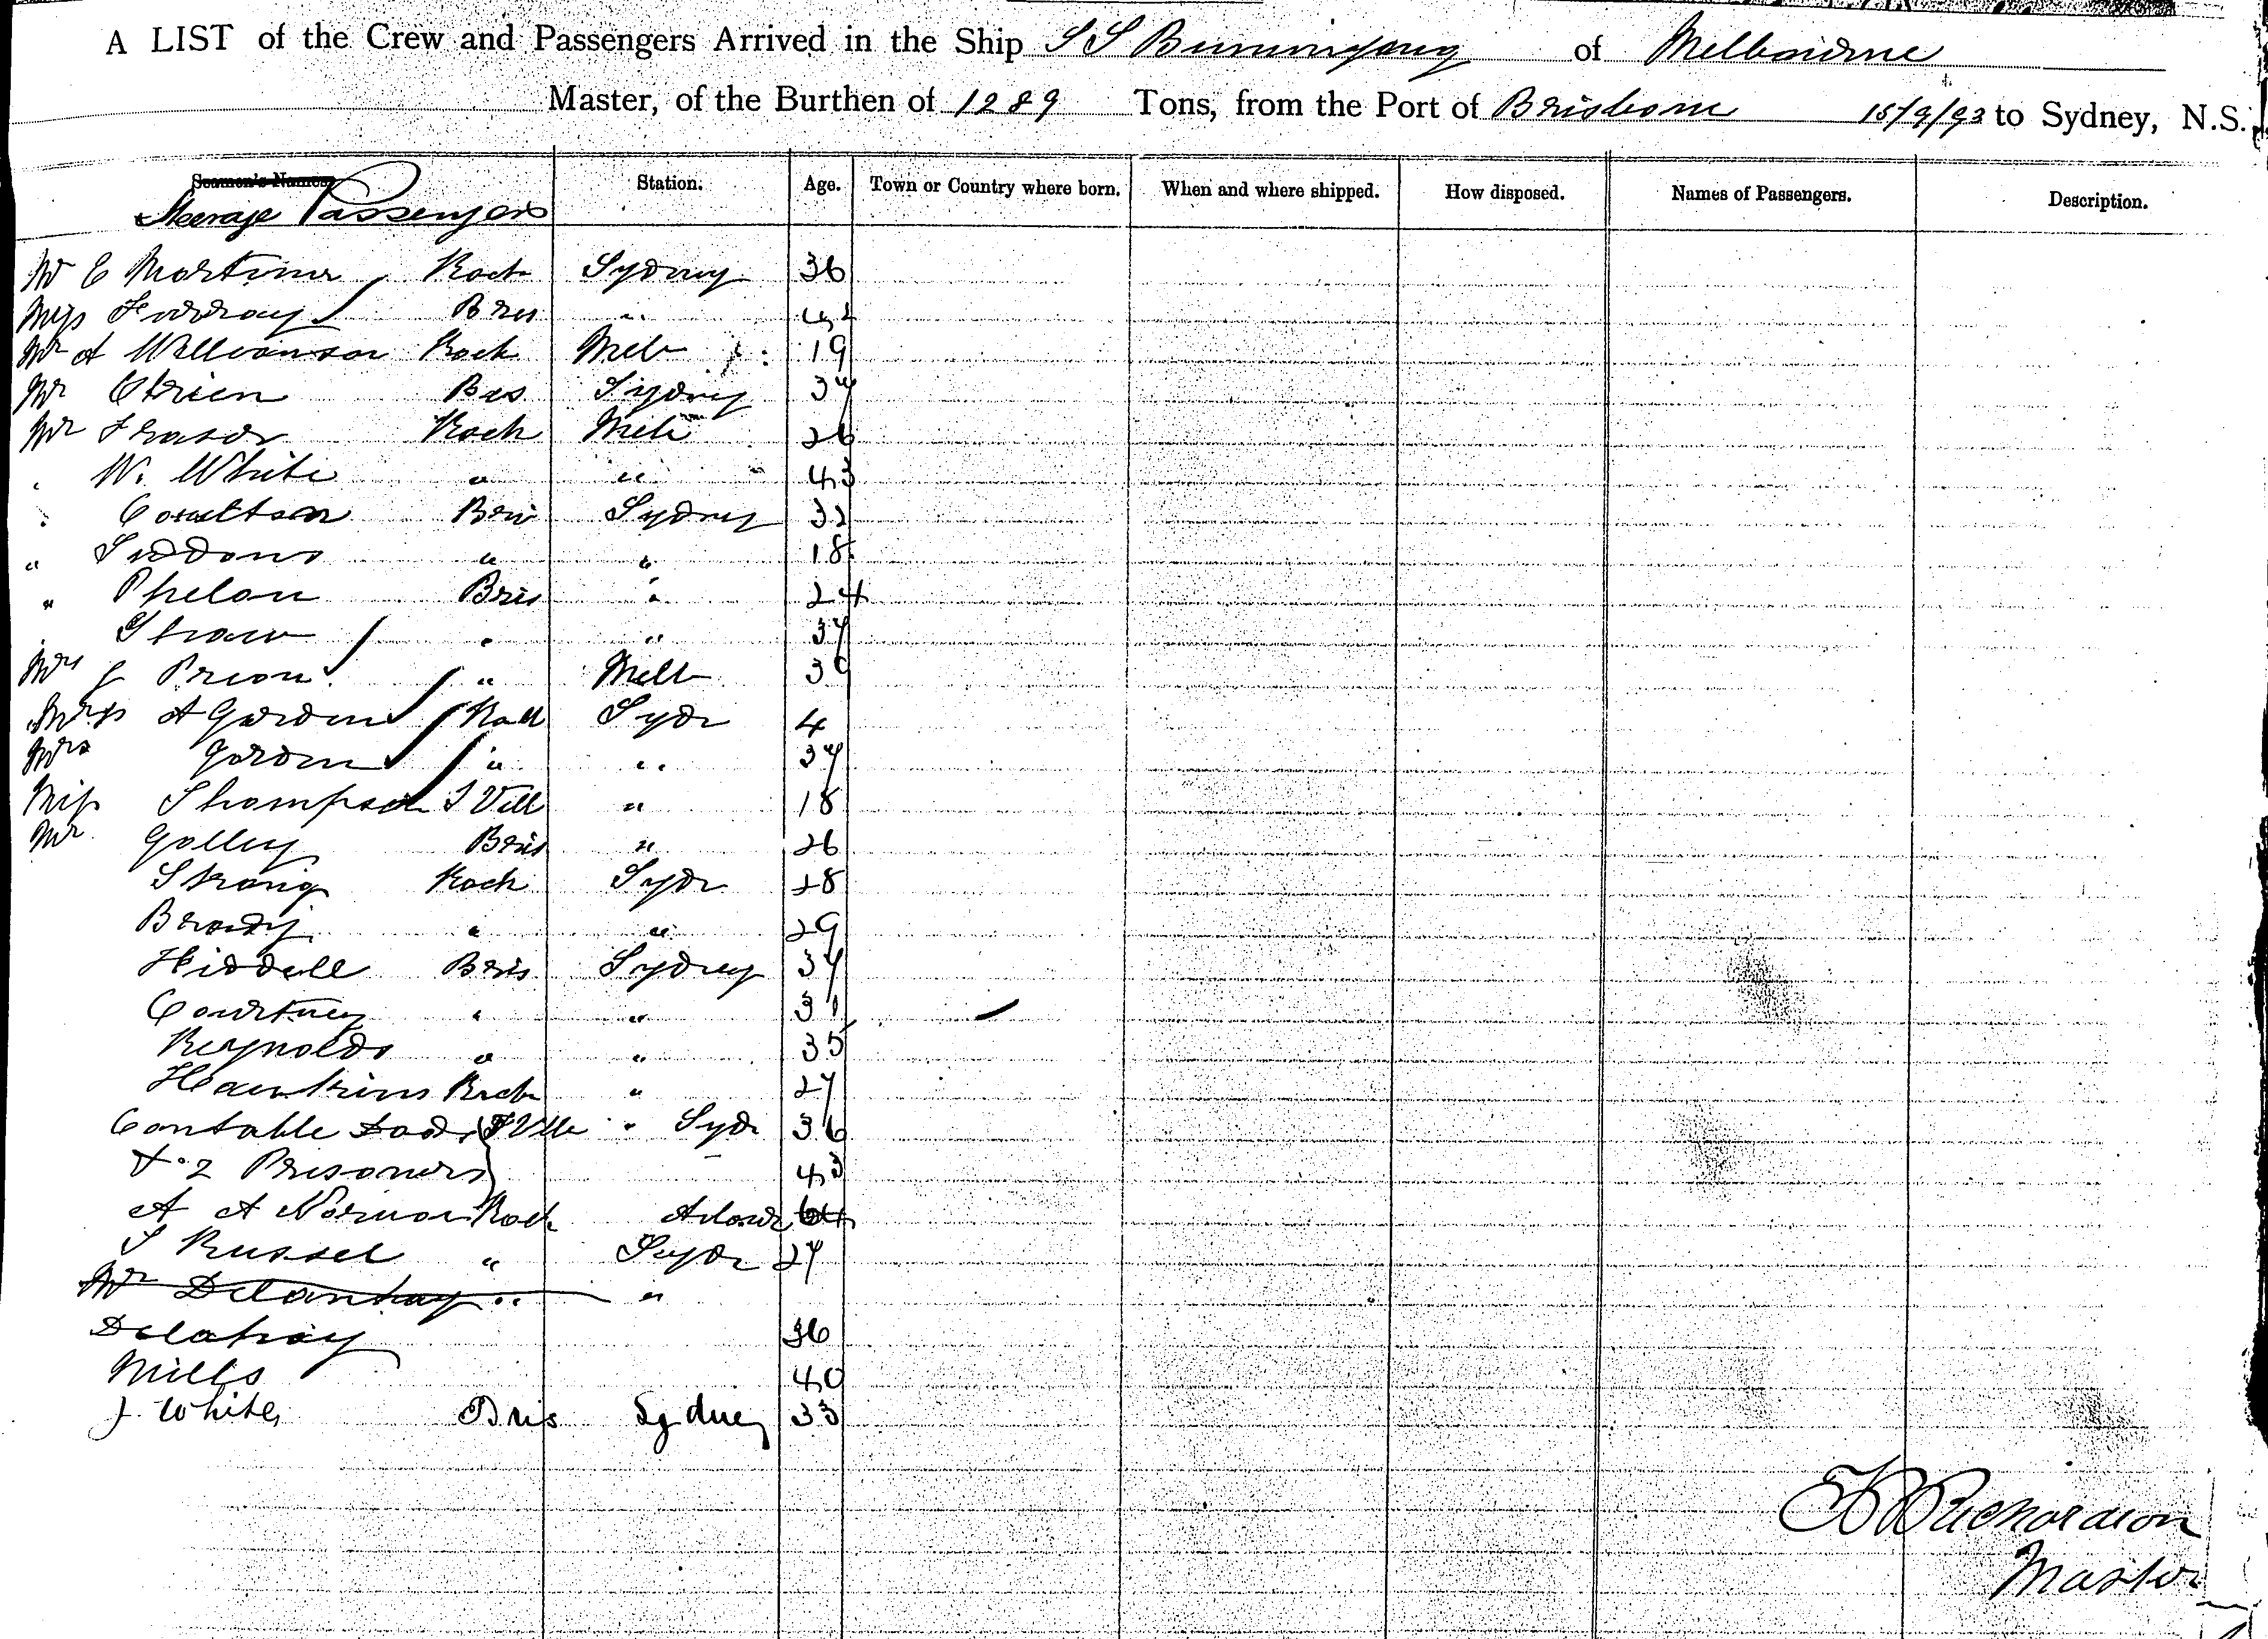 A LIST of the Crew and Passengers Arrived in the Ship S S Buninyong of Melbourne
Master, of the Burthen of 1289 Tons, from the Port of Brisbane 15/9/93 to Sydney, N.S.
Seamen's Names. Station. Age. Town or Country where born. When and where shipped. How disposed. Names of Passengers. Description.
Steerage Passengers
Mr E Mortimer Rock Sydney 36
Miss Bris "
Mr A Williamson Rock Melb 19
Mr OBrien Bris Sydney 34
Mr Fraser Rock Melb 26
" W. White " " 43
" Coultson Bris Sydney 32
" Siddons " " 18
" Phelan Bris " 24
" Straw " " 37
Mrs J " Melb 30
A Gordon Rock Sydr 4
Mrs Gordon " " 34
Miss Thompson T Vill " 18
Mr Golley Bris " 26
Strong Rock Sydr 28
Brody " " 29
Hiddell Bris Sydney 37
Courtney " " 31
Reynolds " " 35
Hawkins Rock " 27
Constable T Ville " Syd 36
& 2 Prisoners 43
A A Norman Rock 64
T Russel " Sydr 27
Mr Delanhay " "
Delahay 36
Mills 40
J. White, Bris Sydney 33
Richardson
Master